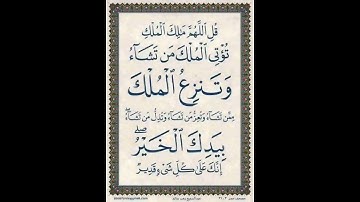 قُلِ اللَّهُمَّ مَالِكَ الْمُلْكِ
تُؤْتِى الْمُلْكَ مَن تَشَاءُ
وَتَنزِعُ الْمُلْكَ
مِمَّن تَشَاءُ وَتُعِزُّ مَن تَشَاءُ وَتُذِلُّ مَن تَشَاءُ
بِيَدِكَ الْخَيْرُ
إِنَّكَ عَلَىٰ كُلِّ شَىْءٍ قَدِيرٌ